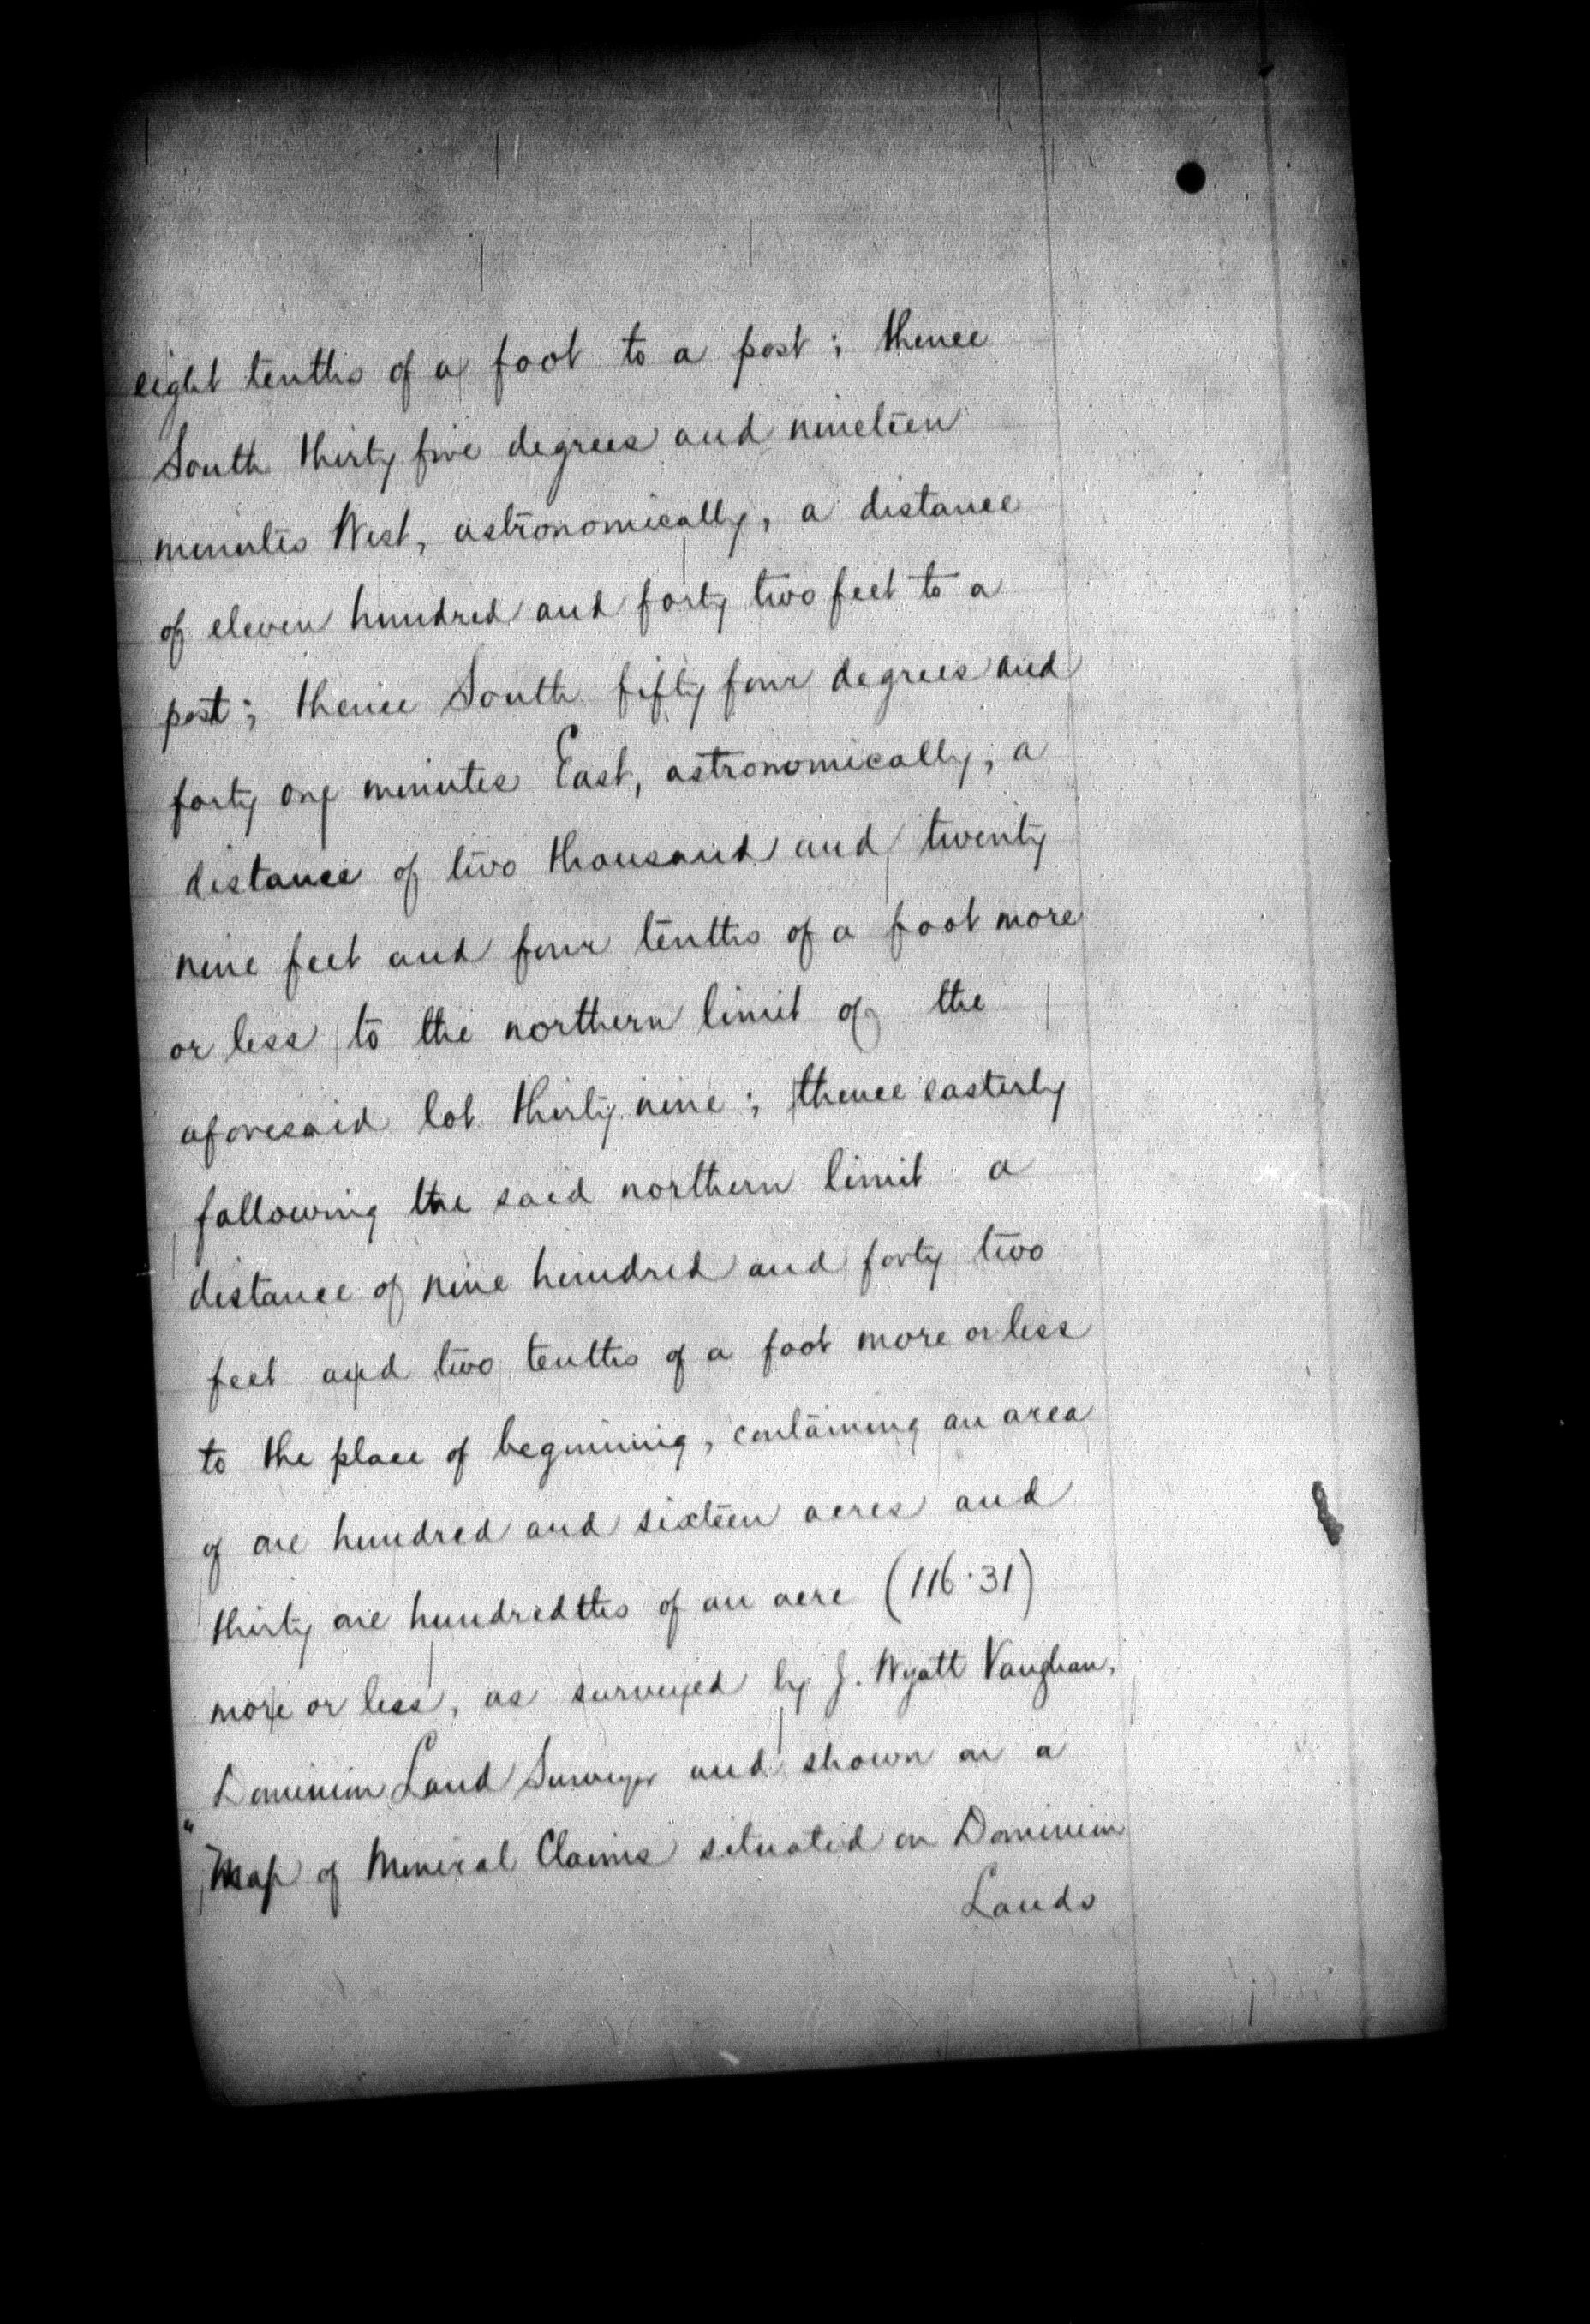 eight tenths of a foot to a post; thence
South thirty five degrees and nineteen
minutes West, astronomically, a distance
of eleven hundred and forty two feet to a
post; thence South fifty four degrees and
forty one minutes East, astronomically, a
distance of two thousand and twenty
nine feet and four tenths of a foot more
or less to the northern limit of the
aforesaid lot thirty nine; thence easterly
following the said northern limit a
distance of nine hundred and forty two
feet and two tenths of a foot more or less
to the place of beginning, containing an area
of one hundred and sixteen acres and
thirty one hundredths of an acre (116.31)
more or less, as surveyed by J. Wyatt Vaughan,
Dominion Land Surveyor and shown on a
"Map of Mineral Claims situated on Dominion
Lands